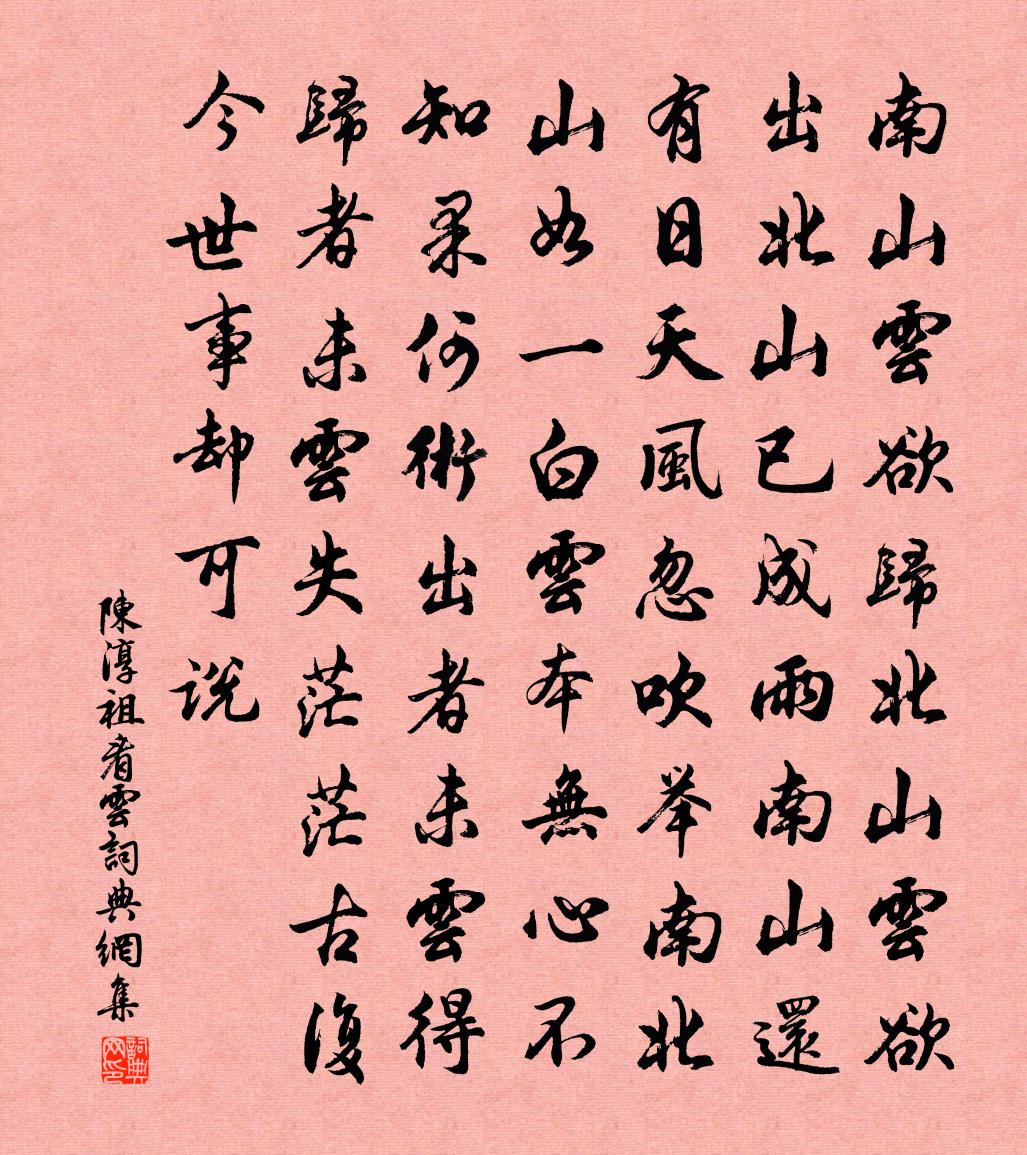 南山雲欲歸北山雲欲
出北山已成雨南山還
有日天風忽吹举南北
山如一白雲本無心不
知果何術出者未雲得
歸者未雲失茫茫古復
今世事却可说
陳淳祖看雲詞典網集
詞典网印